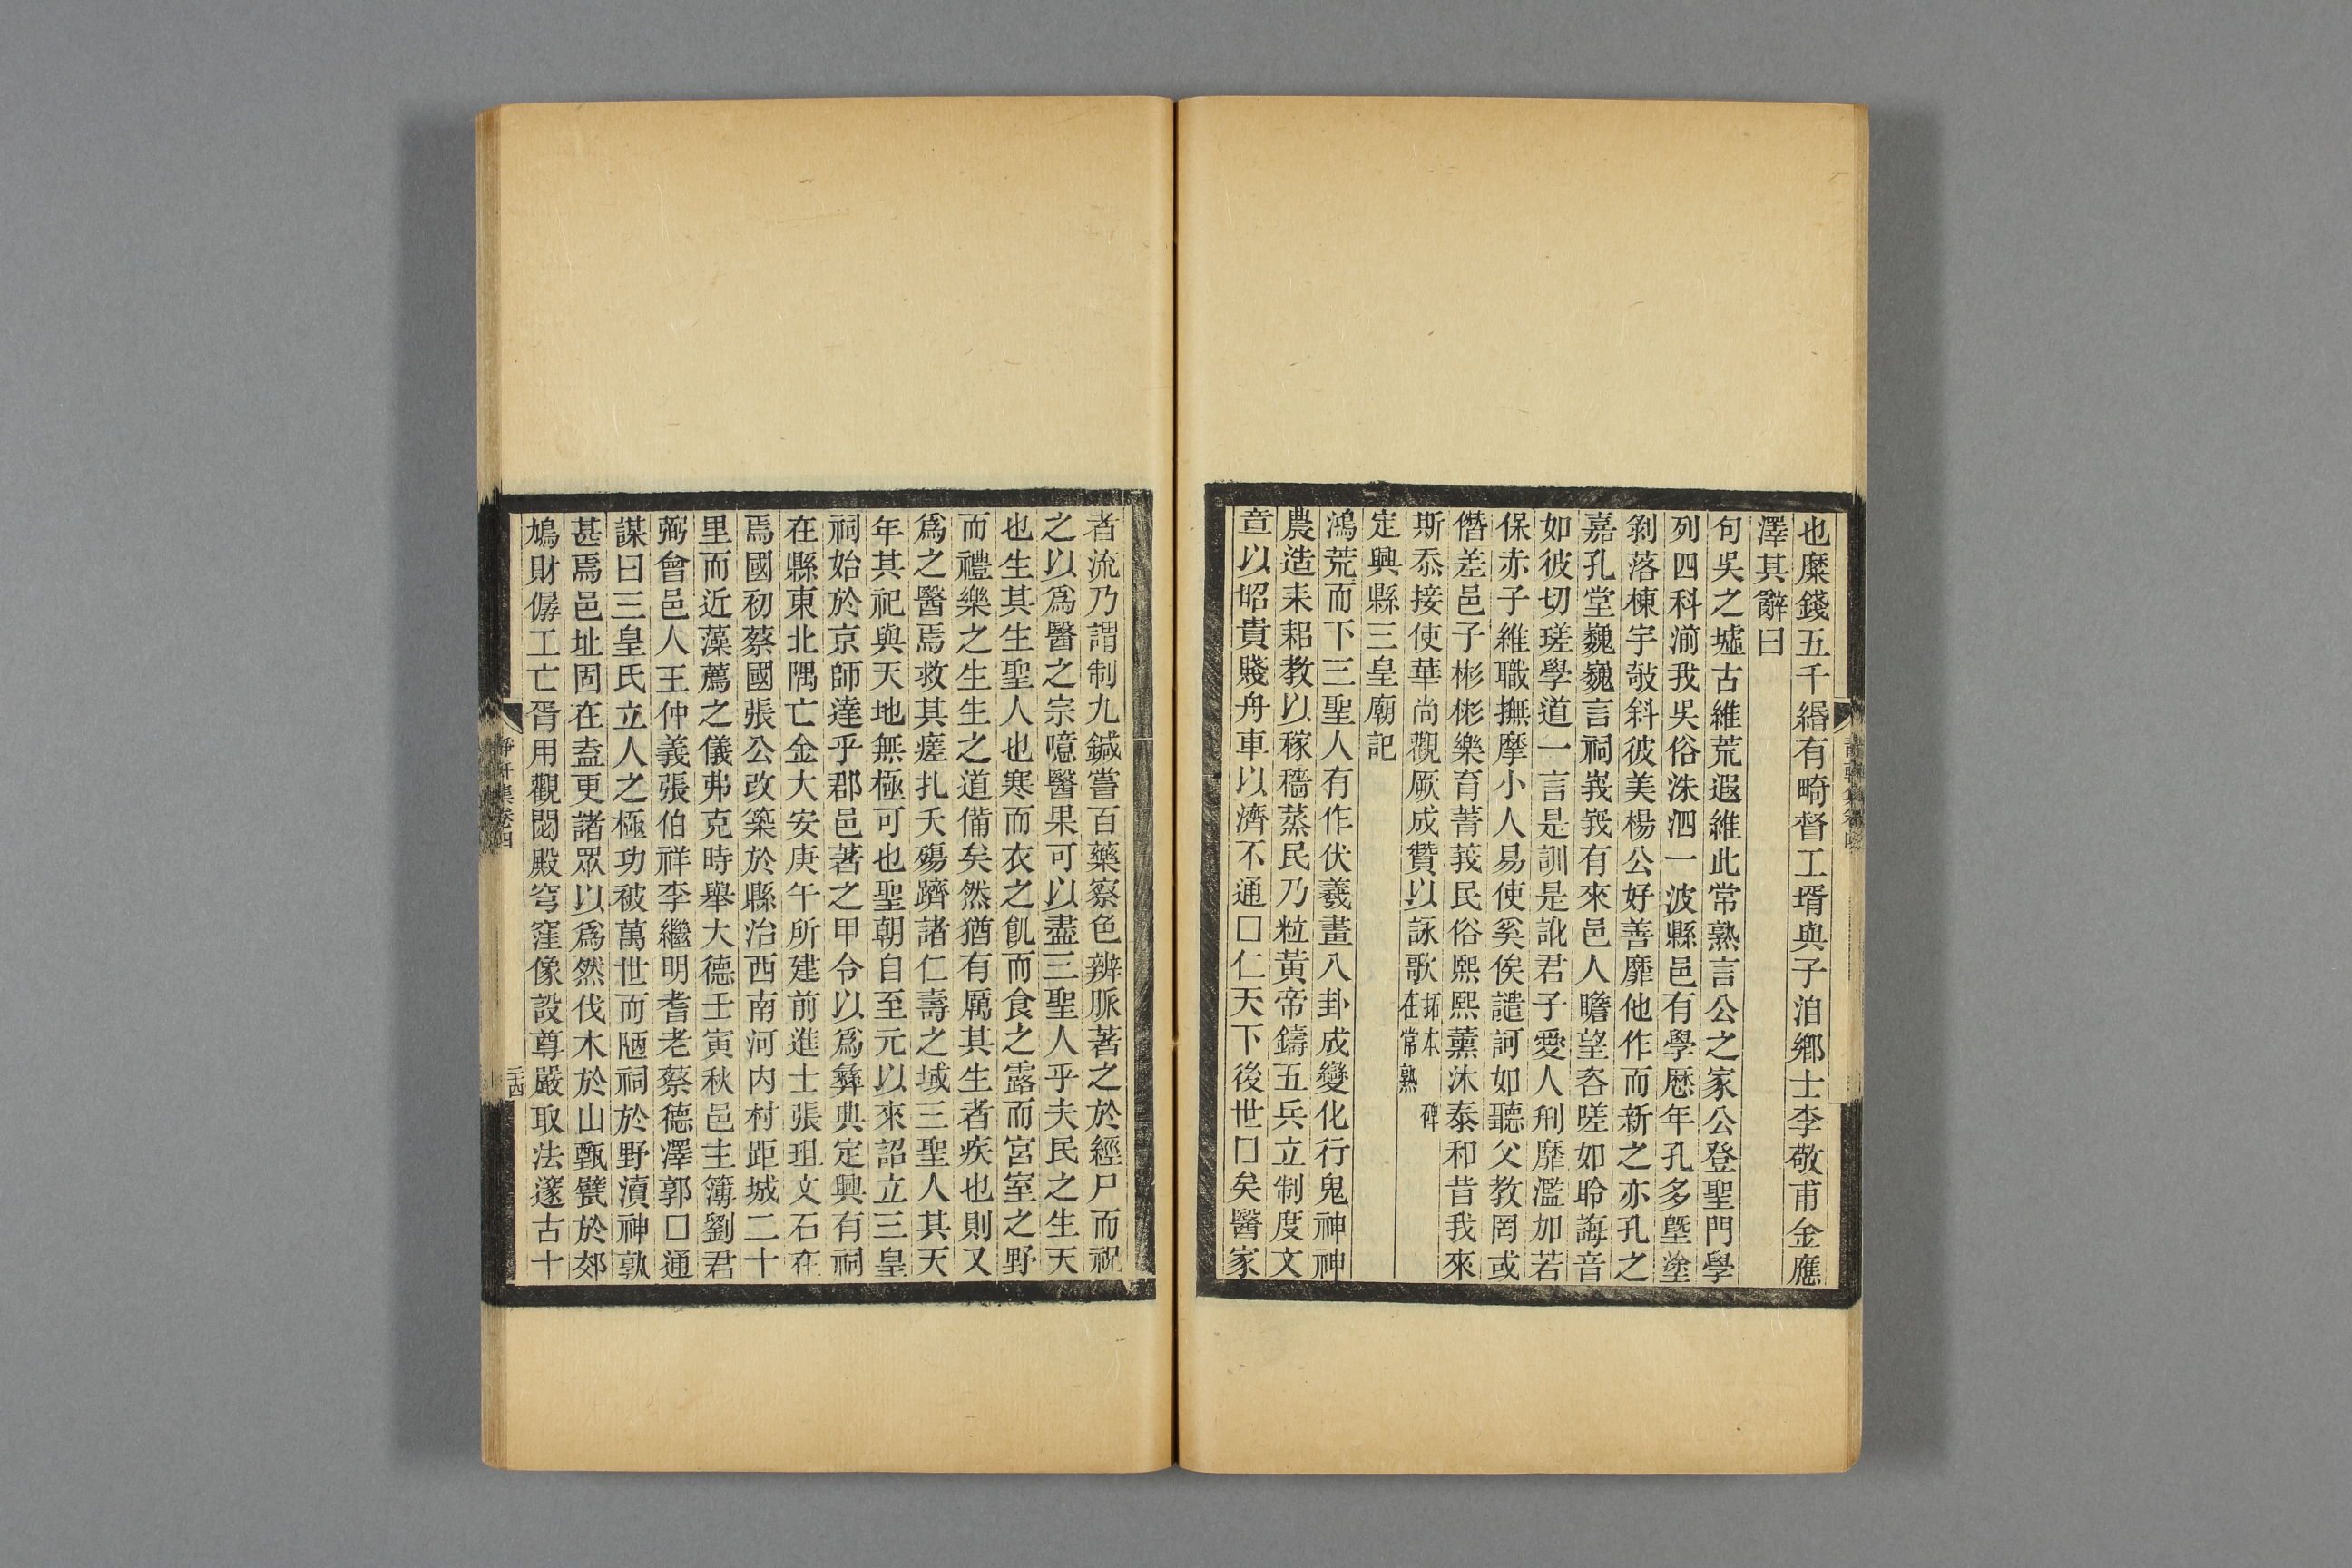 也糜錢五千緡有畸督工壻與子洎鄉士李敬甫金應
澤其辭曰
句吳之墟古維荒遐維此常熟言公之家公登聖門學
列四科湔我吳俗洙泗一波縣邑有學厯年孔多墍塗
剝落棟宇攲斜彼美楊公好善靡他作而新之亦孔之
嘉孔堂巍巍言祠峩峩有來邑人瞻望咨嗟如聆誨音
如彼切瑳學道一言是訓是訛君子愛人刑靡濫加若
保赤子維職撫摩小人易使奚俟譴訶如聽父教罔或
僭差邑子彬彬樂育菁莪民俗熙熙薰沐泰和昔我來
斯忝接使華尚觀厥成贊以詠歌拓本碑在常熟
定興縣三皇廟記
鴻荒而下三聖人有作伏羲畫八卦成變化行鬼神神
農造耒耜教以稼穡蒸民乃粒黃帝鑄五兵立制度文
章以昭貴賤舟車以濟不通囗仁天下後世囗矣醫家
者流乃謂制九鍼嘗百藥察色辨脈著之於經尸而祝
之以爲醫之宗噫醫果可以盡三聖人乎夫民之生天
也生其生聖人也寒而衣之飢而食之露而宮室之野
而禮樂之生生之道備矣然猶有厲其生者疾也則又
爲之醫焉救其瘥札夭殤躋諸仁壽之域三聖人其天
年其祀與天地無極可也聖朝自至元以來詔立三皇
祠始於京師達乎郡邑著之甲令以爲彝典定興有祠
在縣東北隅亡金大安庚午所建前進士張珇文石在
焉國初蔡國張公改築於縣治西南河内村距城二十
里而近藻薦之儀弗克時舉大德壬寅秋邑主簿劉君
弼會邑人王仲義張伯祥李繼明耆老蔡德澤郭囗通
謀曰三皇氏立人之極功被萬世而陋祠於野瀆神孰
甚焉邑址固在盍更諸眾以爲然伐木於山甄甓於郊
鳩財僝工亡胥用觀閟殿穹窪像設尊嚴取法邃古十
靜軒集卷四
二十四